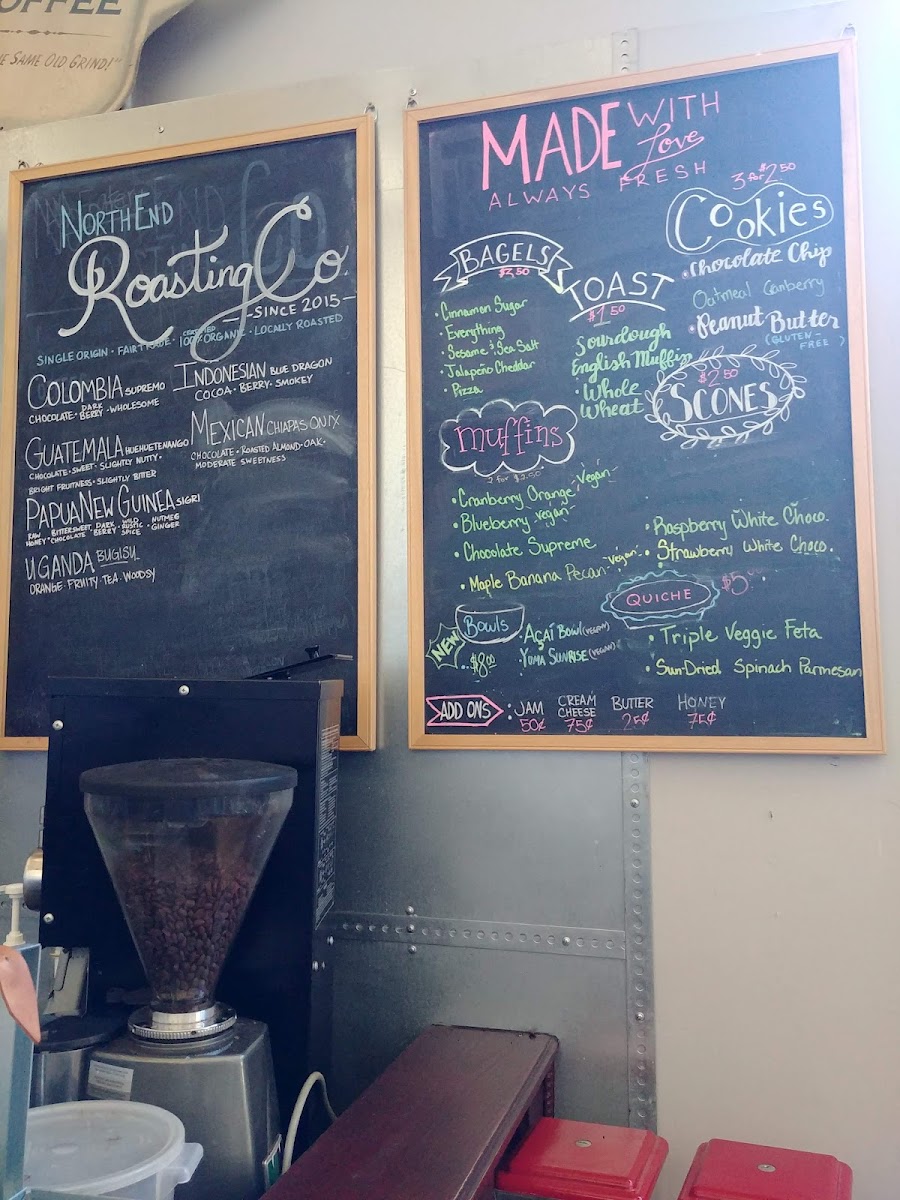 OFFEE
E SAME OLD GRIND!"
NORTH END
Roasting Co.
-SINCE 2015-
SINGLE ORIGIN · FAIR TRADE · CERTIFIED 100% ORGANIC · LOCALLY ROASTED
COLOMBIA SUPREMO
CHOCOLATE · DARK BERRY · WHOLESOME
INDONESIAN BLUE DRAGON
COCOA · BERRY · SMOKEY
GUATEMALA HUEHUETENANGO
CHOCOLATE · SWEET · SLIGHTLY NUTTY ·
BRIGHT FRUITNESS · SLIGHTLY BITTER
MEXICAN CHIAPAS ONIX
CHOCOLATE · ROASTED ALMOND · OAK ·
MODERATE SWEETNESS
PAPUA NEW GUINEA SIGRI
RAW HONEY · BITTERSWEET CHOCOLATE · DARK BERRY · WILD RUSTIC SPICE · NUTMEG GINGER
UGANDA BUGISU
ORANGE · FRUITY TEA · WOODSY
MADE WITH
Love
ALWAYS FRESH
BAGELS
$3.50
· Cinnamon Sugar
· Everything
· Sesame & Sea Salt
· Jalapeño Cheddar
· Pizza
TOAST
$1.50
Sourdough
English Muffin
· Whole
Wheat
3 for $2.50
Cookies
· Chocolate Chip
Oatmeal Cranberry
· Peanut Butter
(GLUTEN-
FREE)
$2.50
SCONES
· Raspberry White Choco.
· Strawberry White Choco.
muffins
2 for $2.00
· Cranberry Orange Vegan
· Blueberry vegan
· Chocolate Supreme
· Maple Banana Pecan Vegan
NEW
Bowls
..$8.00
· AÇAÍ BOWL (VEGAN)
· YUMA SUNRISE (VEGAN)
QUICHE
$5
· Triple Veggie Feta
· Sun-Dried Spinach Parmesan
ADD ONS : JAM 50¢ CREAM CHEESE 75¢ BUTTER 25¢ HONEY 75¢